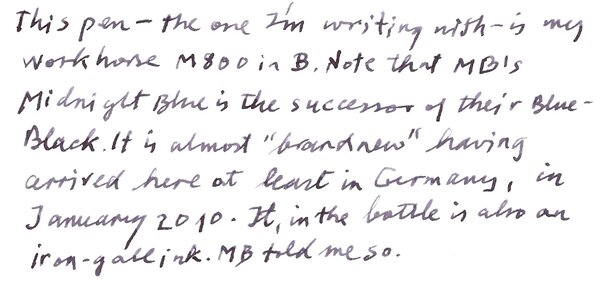 This pen – the one I'm writing with – is my
workhorse M800 in B. Note that MB's
Midnight Blue is the successor of their Blue-
Black. It is almost "brandnew" having
arrived here at least in Germany, in
January 2010. It, in the bottle is also an
iron-gall ink. MB told me so.